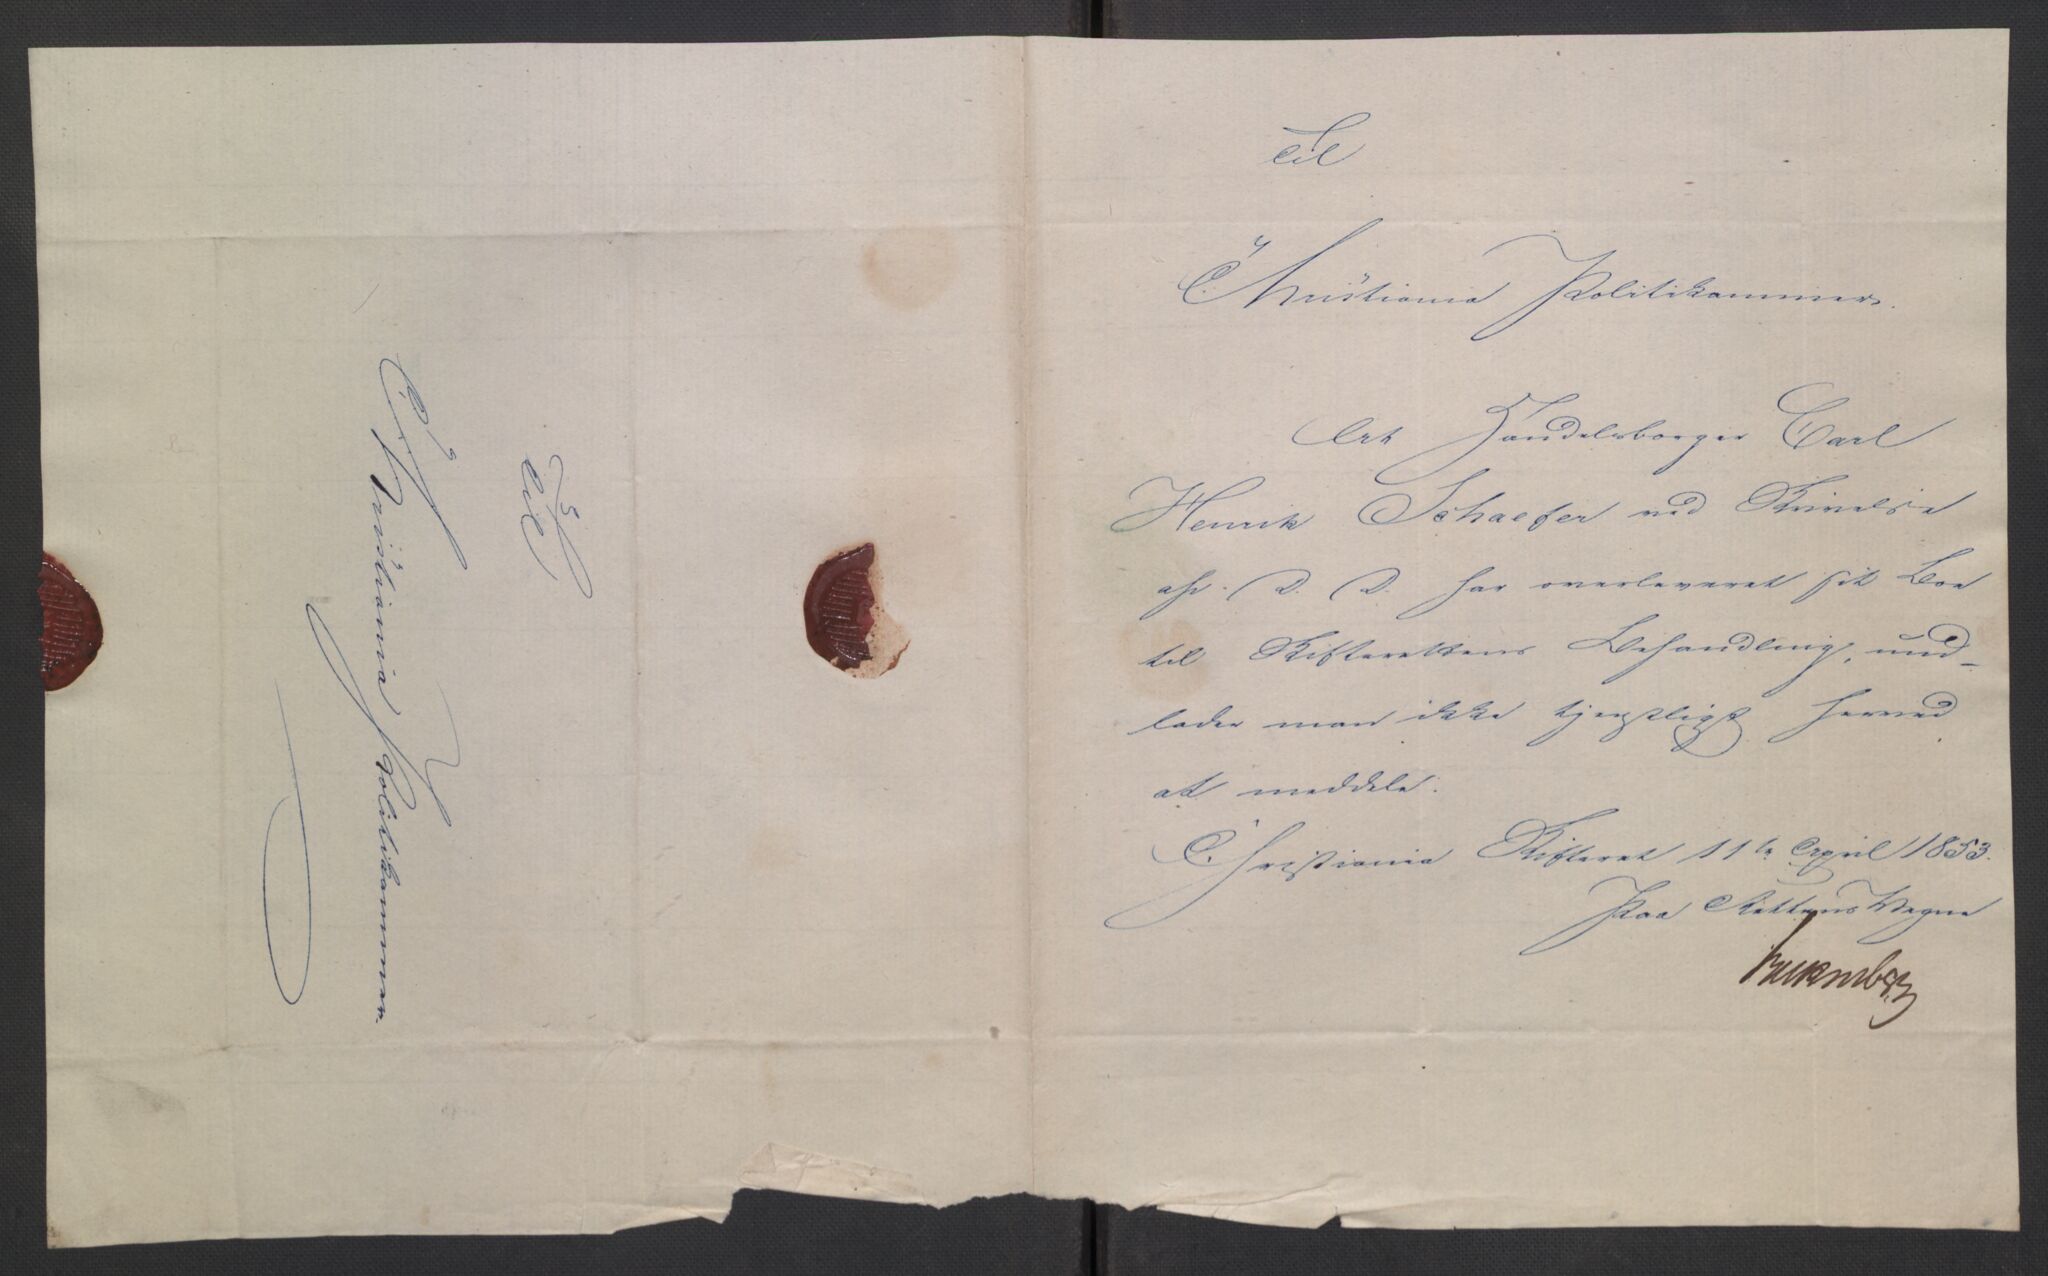 Til
Christiania Politikammer.
Til
Christiania Politikammer.
At Handelsborger Carl
Henrik Schaefer ved Skrivelse
af D. D. har overleveret sit Boe
til Skifterettens Behandling, und-
lader man ikke tjenstligt herved
at meddele.
Christiania Skifteret 11te April 1853.
Paa Rettens Vegne